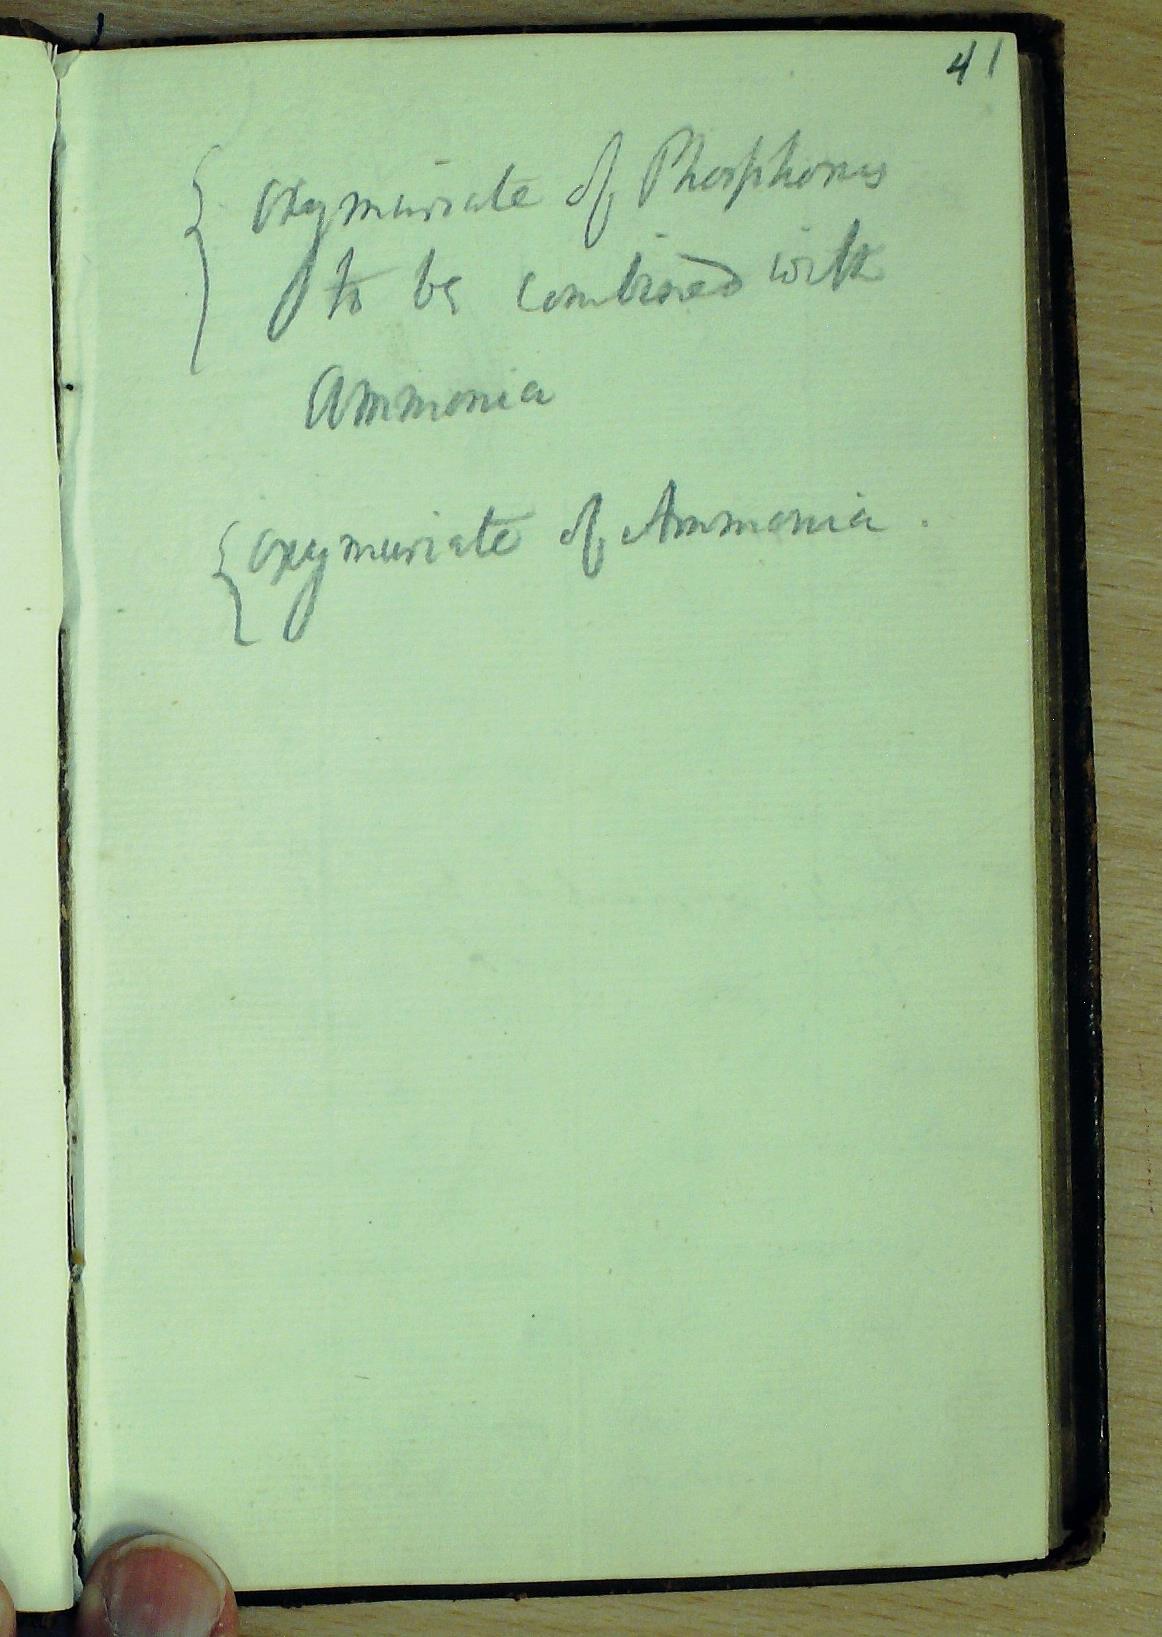 41
{ Oxymuriate of Phosphorus
to be combined with
Ammonia
{ Oxymuriate of Ammonia .